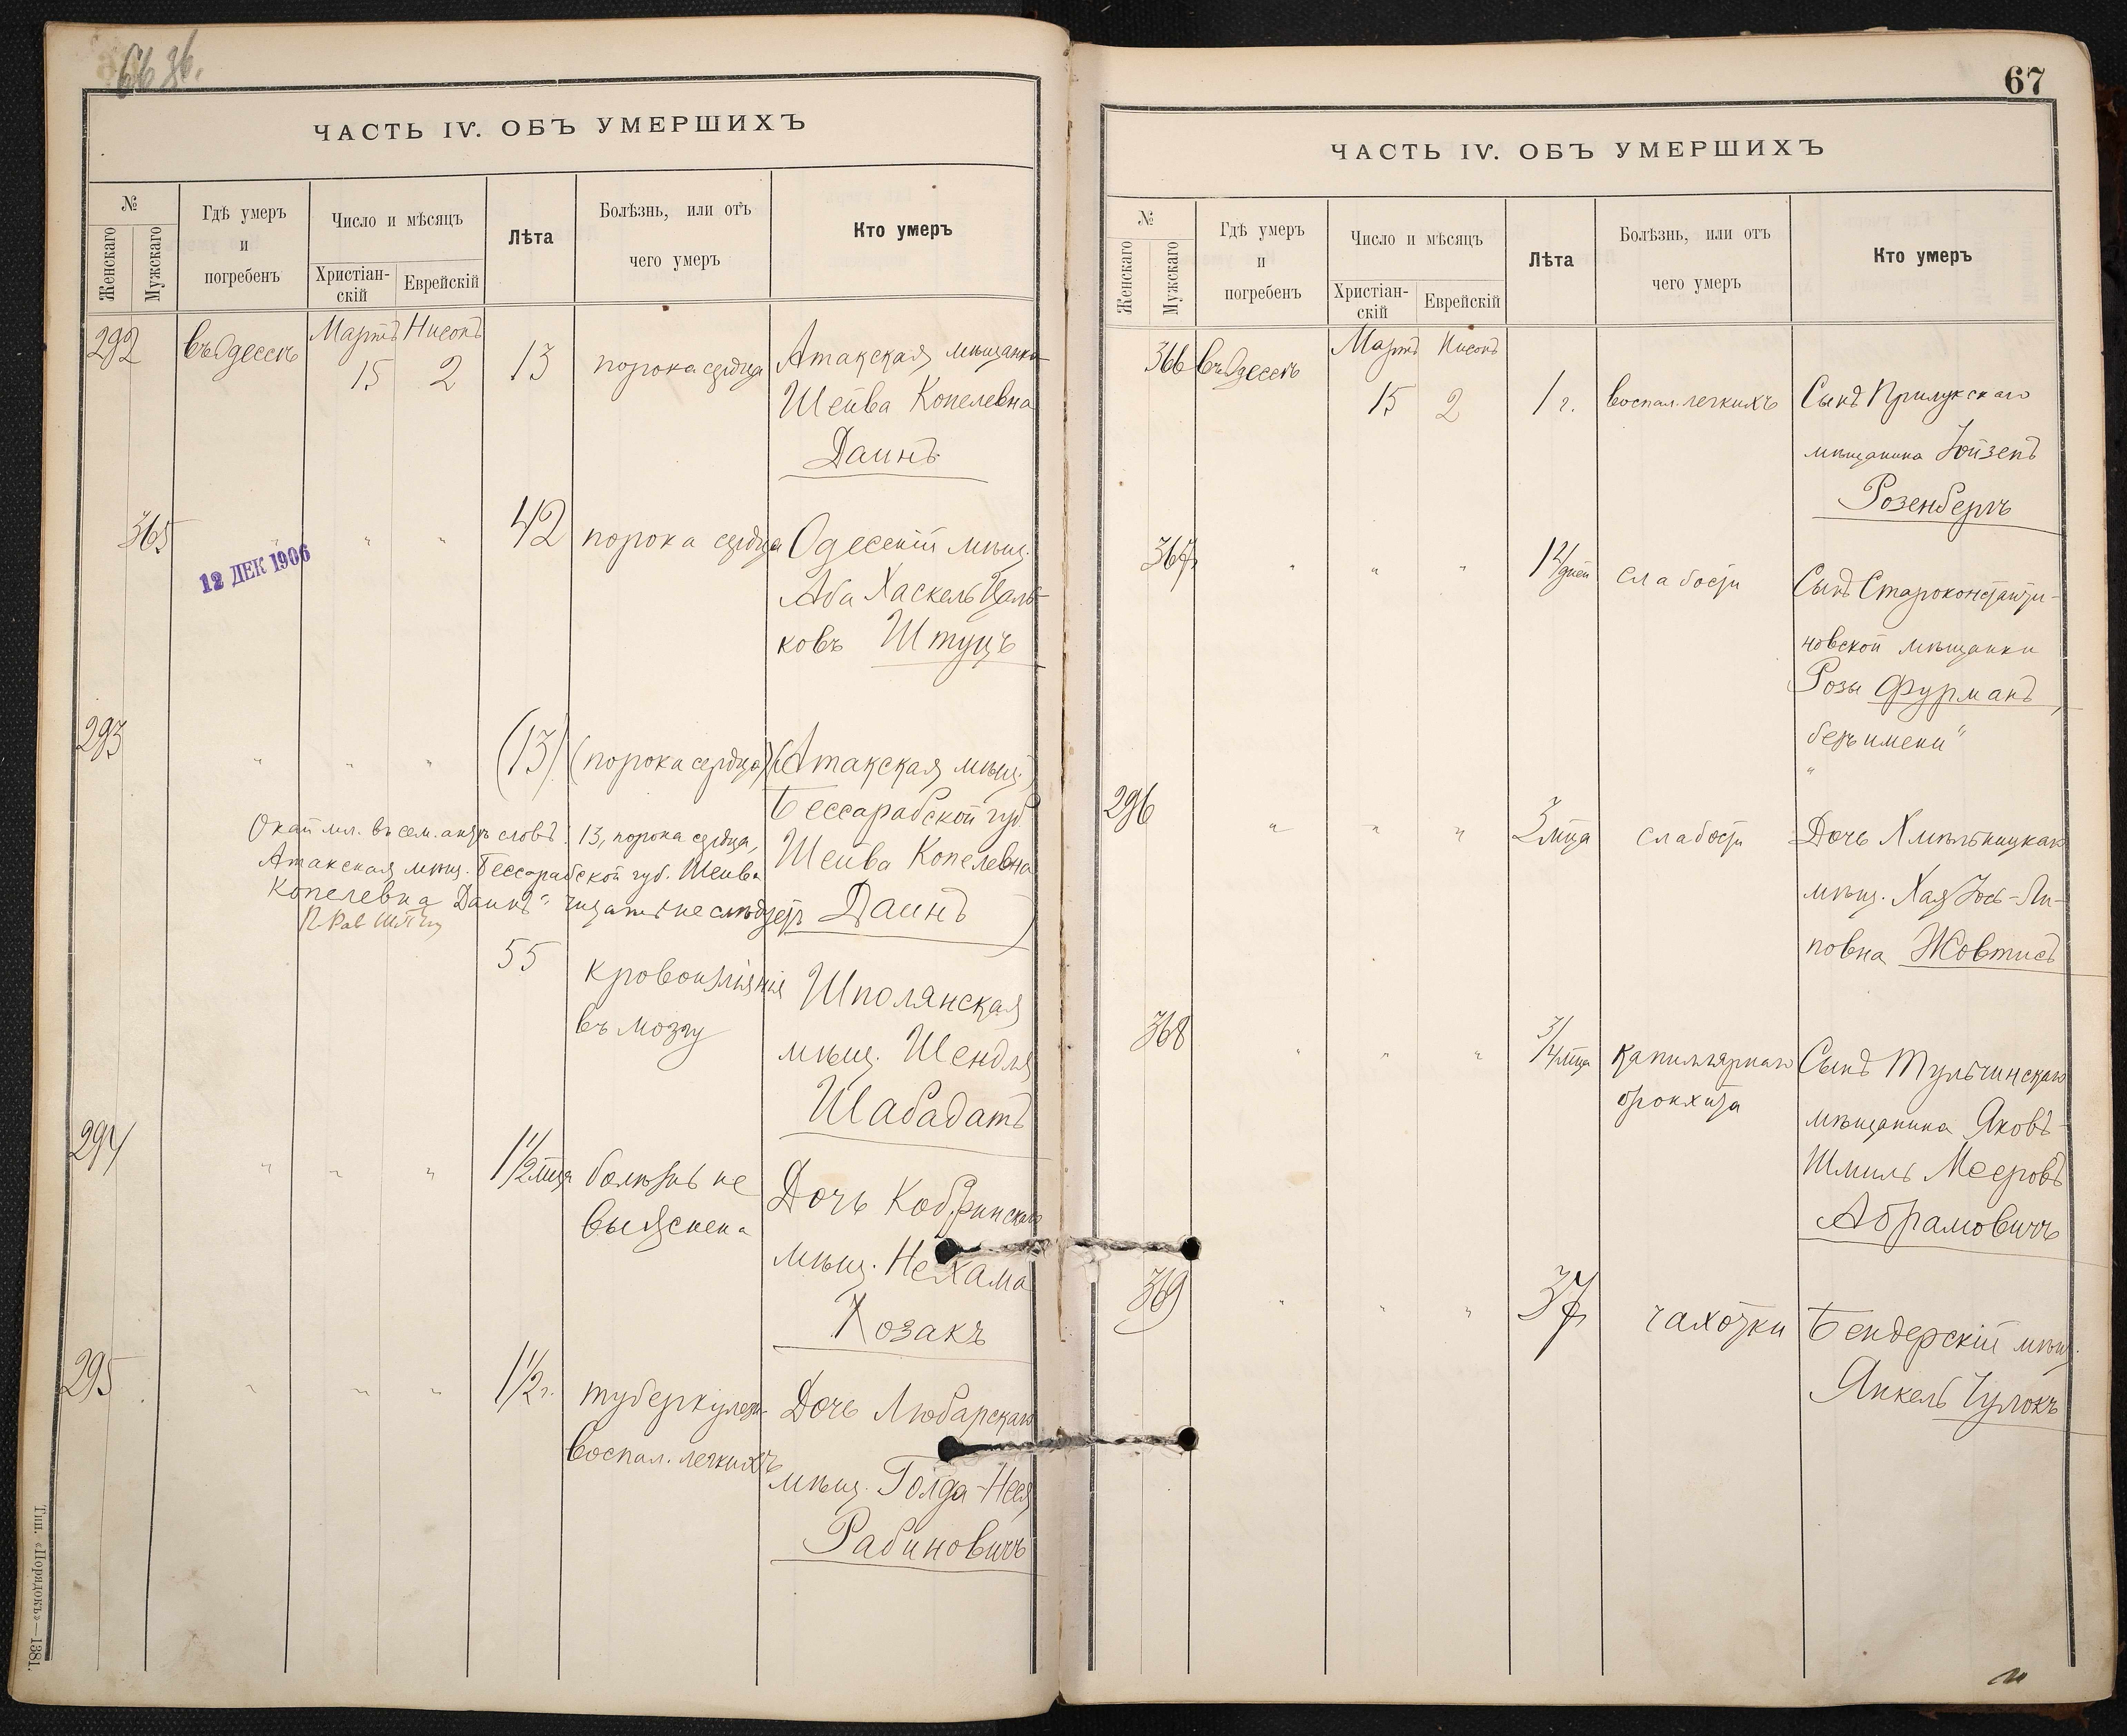 ЧАСТЬ IV. ОБЪ УМЕРШИХЪ
№
Женскаго
Мужскаго
Гдѣ умеръ
и
погребенъ
Число и мѣсяцъ
Христіан-
скій
Еврейскій
Лѣта
Болѣзнь, или отъ
чего умеръ
Кто умеръ
292 въ Одессѣ Мартъ Нисонъ
15 2 13 порока сердца Атакская мѣщанка
Шейва Копелевна
Даинъ
365 " " " 42 порока сердца Одесскій мѣщ.
12 ДЕК 1906
Аба Хаскель Цаль-
ковъ Штуцъ
293 " " " (13) (порока сердца) (Атакская мѣщ.
Бессарабской губ.
Шейва Копелевна
Даинъ)
словъ: 13, порока сердца,
Атакская мѣщ. Бессарабской губ. Шейва
Копелевна Даинъ" читать не слѣдуетъ
55 кровоизліянія
въ мозгу
Шполянская
мѣщ. Шендля
Шабадатъ
294 " " " 1 1/2 мца болѣзнь не
выяснена
Дочь Кобринскаго
мѣщ. Нехама
Козакъ
295 " " " 1 1/2 г. туберкулезн.
воспал. легкихъ
Дочь Любарскаго
мѣщ. Голда-Неся
Рабиновичъ
Тип. «Порядокъ» — 1381.
67
ЧАСТЬ IV. ОБЪ УМЕРШИХЪ
№
Женскаго
Мужскаго
Гдѣ умеръ
и
погребенъ
Число и мѣсяцъ
Христіан-
скій
Еврейскій
Лѣта
Болѣзнь, или отъ
чего умеръ
Кто умеръ
366 въ Одессѣ Мартъ Нисонъ
15 2 1 г. воспал. легкихъ Сынъ Прилукскаго
мѣщанина Іойзепъ
Розенбергъ
367 " " " 14 дней слабости Сынъ Староконстанти-
новской мѣщанки
Розы Фурманъ,
безъ имени"
296 " " " 3 мца слабости Дочь Хмѣльницкаго
мѣщ. Хая Іось-Ли-
повна Жовтисъ
368 " " " 3/4 мца капиллярнаго
бронхита
Сынъ Тульчинскаго
мѣщанина Яковъ-
Шмиль Мееровъ
Абрамовичъ
369 " " " 37 чахотки Бендерскій мѣщ.
Янкель Чулокъ